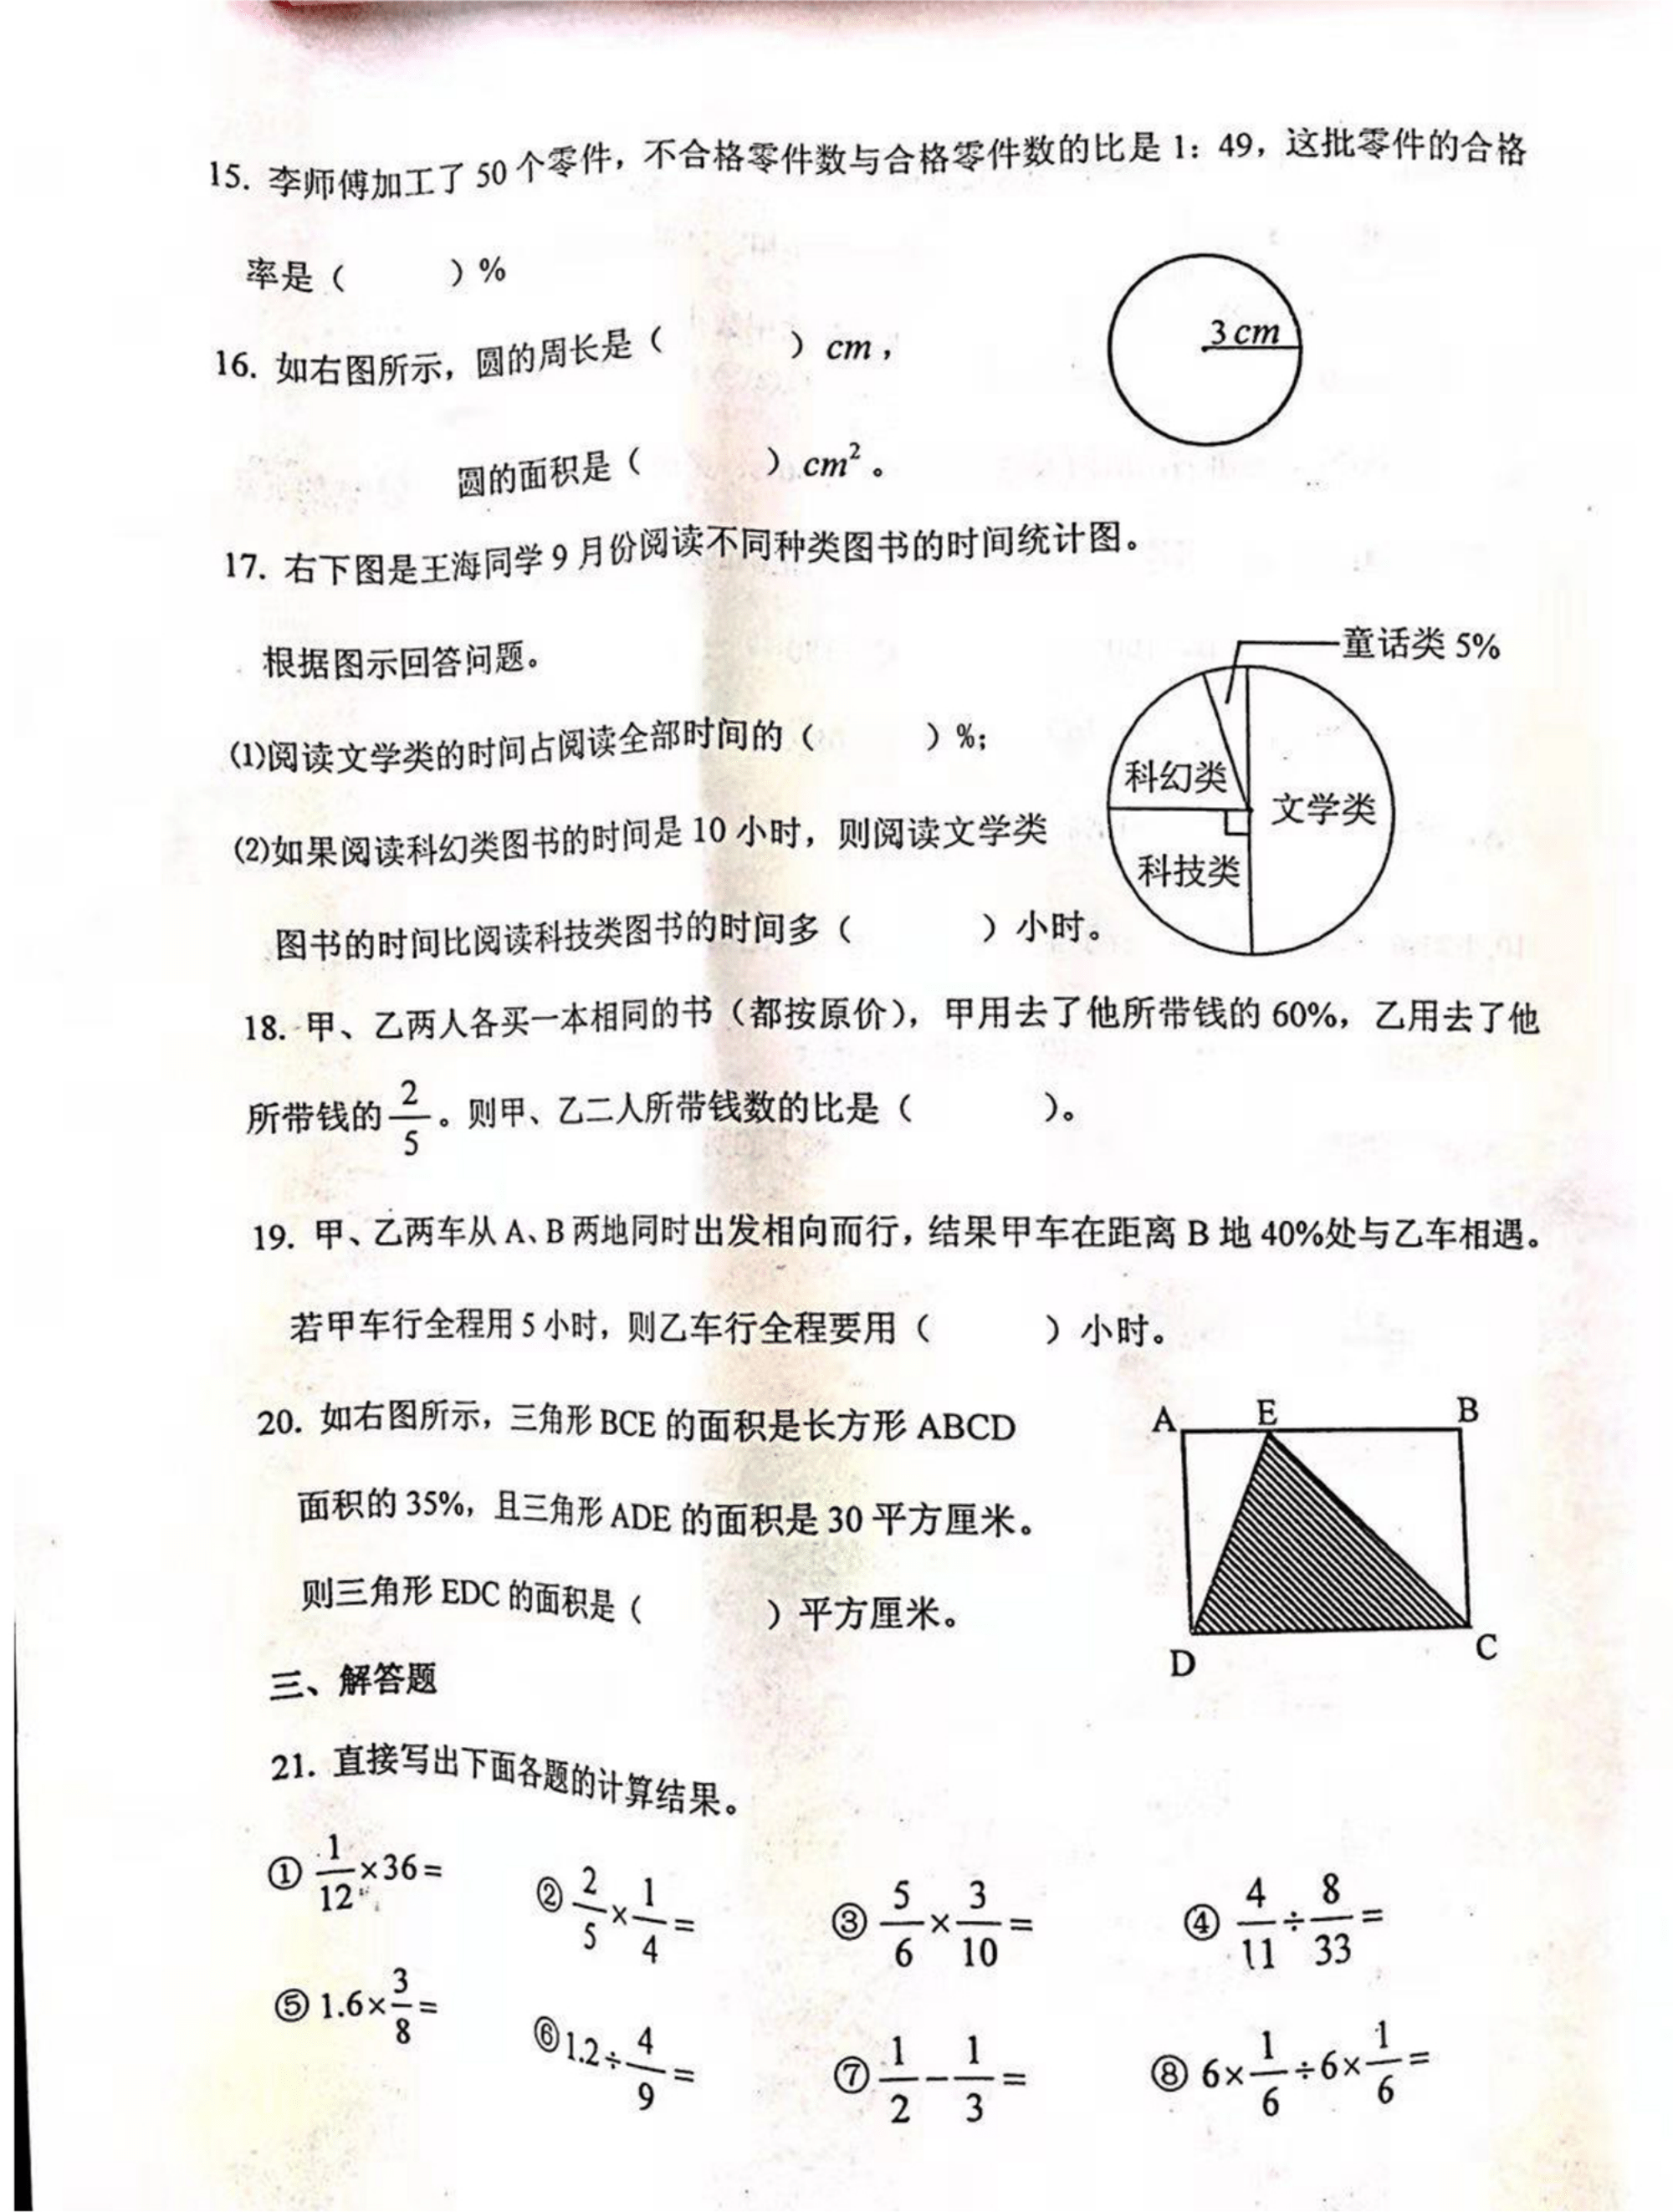 15. 李师傅加工了 50 个零件，不合格零件数与合格零件数的比是 1：49，这批零件的合格
率是（　　）%
16. 如右图所示，圆的周长是（　　）cm，
3cm
圆的面积是（　　）cm²。
17. 右下图是王海同学 9 月份阅读不同种类图书的时间统计图。
根据图示回答问题。
童话类 5%
科幻类
文学类
科技类
⑴阅读文学类的时间占阅读全部时间的（　　）%；
⑵如果阅读科幻类图书的时间是 10 小时，则阅读文学类
图书的时间比阅读科技类图书的时间多（　　）小时。
18. 甲、乙两人各买一本相同的书（都按原价），甲用去了他所带钱的 60%，乙用去了他
所带钱的 2/5 。则甲、乙二人所带钱数的比是（　　）。
19. 甲、乙两车从 A、B 两地同时出发相向而行，结果甲车在距离 B 地 40%处与乙车相遇。
若甲车行全程用 5 小时，则乙车行全程要用（　　）小时。
20. 如右图所示，三角形 BCE 的面积是长方形 ABCD
面积的 35%，且三角形 ADE 的面积是 30 平方厘米。
则三角形 EDC 的面积是（　　）平方厘米。
A E B
D C
三、解答题
21. 直接写出下面各题的计算结果。
① 1/12 ×36= ② 2/5 × 1/4 = ③ 5/6 × 3/10 = ④ 4/11 ÷ 8/33 =
⑤ 1.6× 3/8 = ⑥ 1.2÷ 4/9 = ⑦ 1/2 − 1/3 = ⑧ 6× 1/6 ÷6× 1/6 =